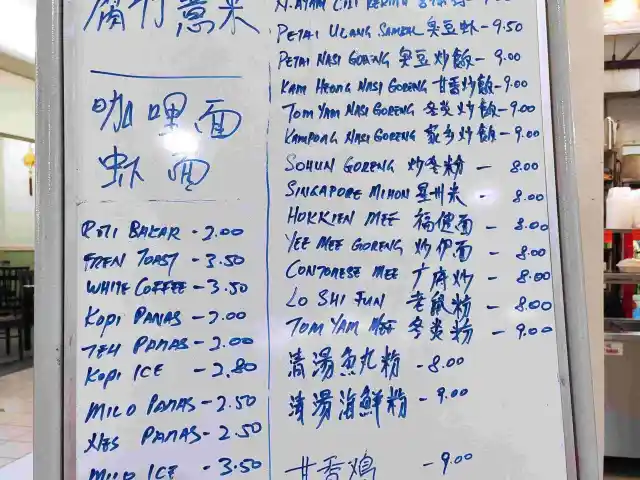 腐竹薏米
咖哩面
虾面
ROTI BAKAR - 2.00
FREN TOAST - 3.50
WHITE COFFEE - 3.50
KOPI PANAS - 2.00
TEH PANAS - 2.00
KOPI ICE - 2.80
MILO PANAS - 2.50
NES PANAS - 2.50
MILO ICE - 3.50
N.AYAM CILI
PETAI UDANG SAMBAL 臭豆虾 - 9.50
PETAI NASI GORENG 臭豆炒飯 - 9.00
KAM HEONG NASI GORENG 甘香炒飯 - 9.00
TOM YAM NASI GORENG 冬炎炒飯 - 9.00
KAMPONG NASI GORENG 家乡炒飯 - 9.00
SOHUN GORENG 炒冬粉 - 8.00
SINGAPORE MIHON 星州米 - 8.00
HOKKIEN MEE 福健面 - 8.00
YEE MEE GORENG 炒伊面 - 8.00
CONTONESE MEE 广府炒 - 8.00
LO SHI FUN 老鼠粉 - 8.00
TOM YAM MEE 冬炎粉 - 9.00
清湯魚丸粉 - 8.00
清湯海鮮粉 - 9.00
甘香鷄 - 9.00